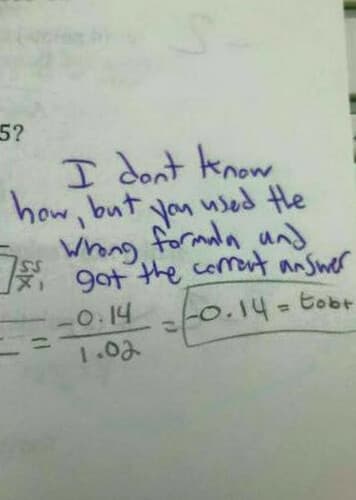 5?
I dont know
how, but you used the
wrong formula and
got the correct answer
SS
X1
-0.14
= 1.02 = -0.14 = tobt